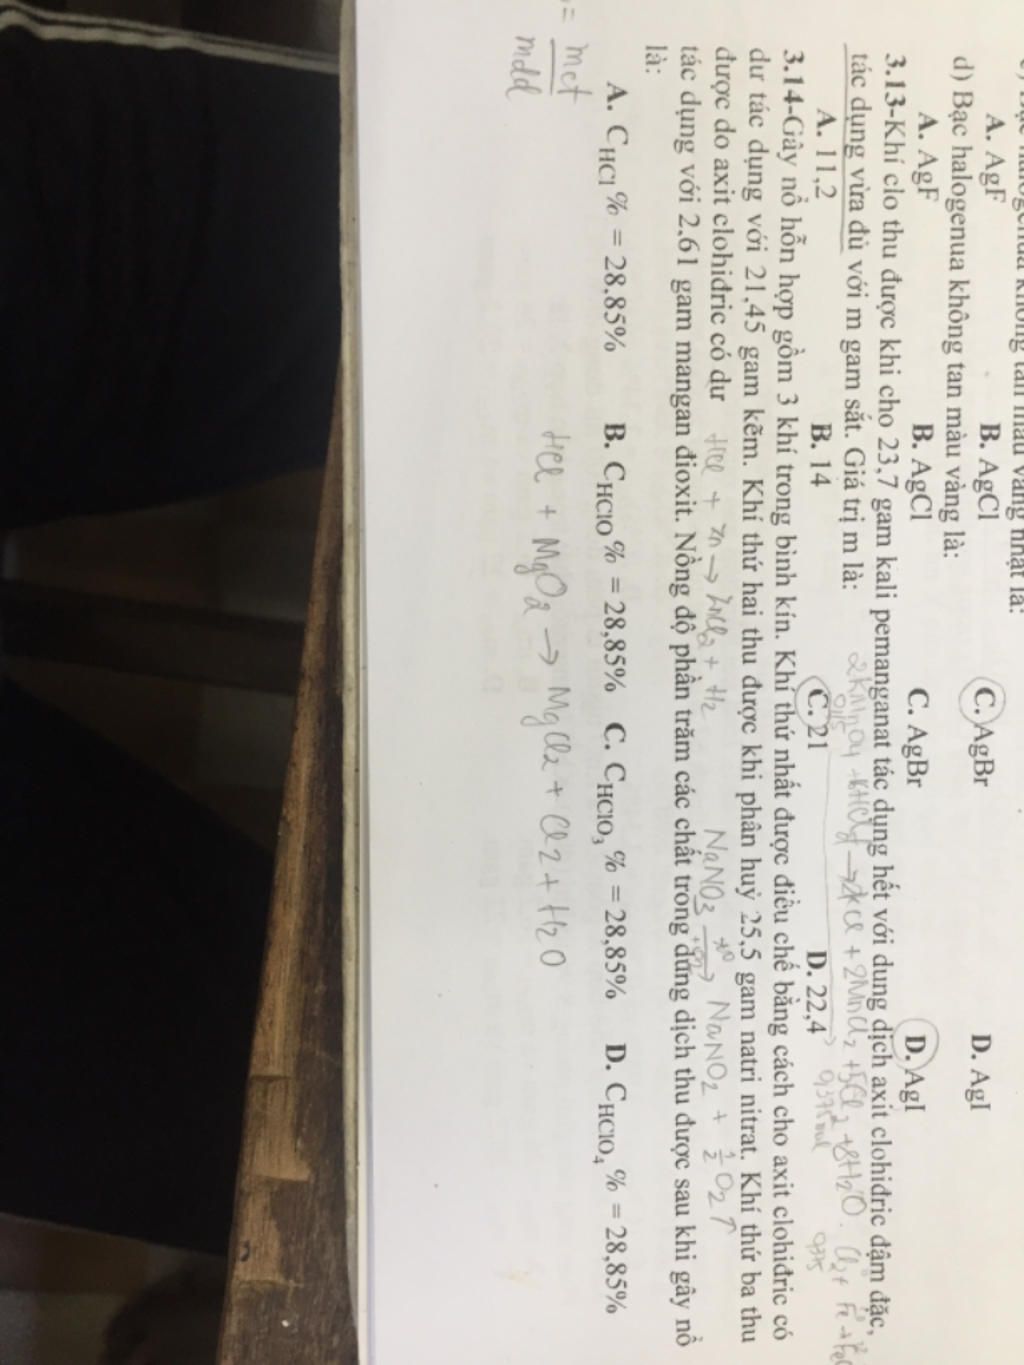 A. AgF B. AgCl C. AgBr D. AgI
d) Bạc halogenua không tan màu vàng là:
A. AgF B. AgCl C. AgBr D. AgI
3.13-Khí clo thu được khi cho 23,7 gam kali pemanganat tác dụng hết với dung dịch axit clohiđric đậm đặc,
tác dụng vừa đủ với m gam sắt. Giá trị m là:
A. 11,2 B. 14 C. 21 D. 22,4
3.14-Gây nổ hỗn hợp gồm 3 khí trong bình kín. Khí thứ nhất được điều chế bằng cách cho axit clohiđric có
dư tác dụng với 21,45 gam kẽm. Khí thứ hai thu được khi phân huỷ 25,5 gam natri nitrat. Khí thứ ba thu
được do axit clohiđric có dư
HCl + Zn → ZnCl2 + H2 NaNO3 → NaNO2 + 1/2 O2 ↑
tác dụng với 2,61 gam mangan đioxit. Nồng độ phần trăm các chất trong dung dịch thu được sau khi gây nổ
là:
A. CHCl% = 28,85% B. CHClO% = 28,85% C. CHClO3% = 28,85% D. CHClO4% = 28,85%
HCl + MgO2 → MgCl2 + Cl2 + H2O
= mct
mdd